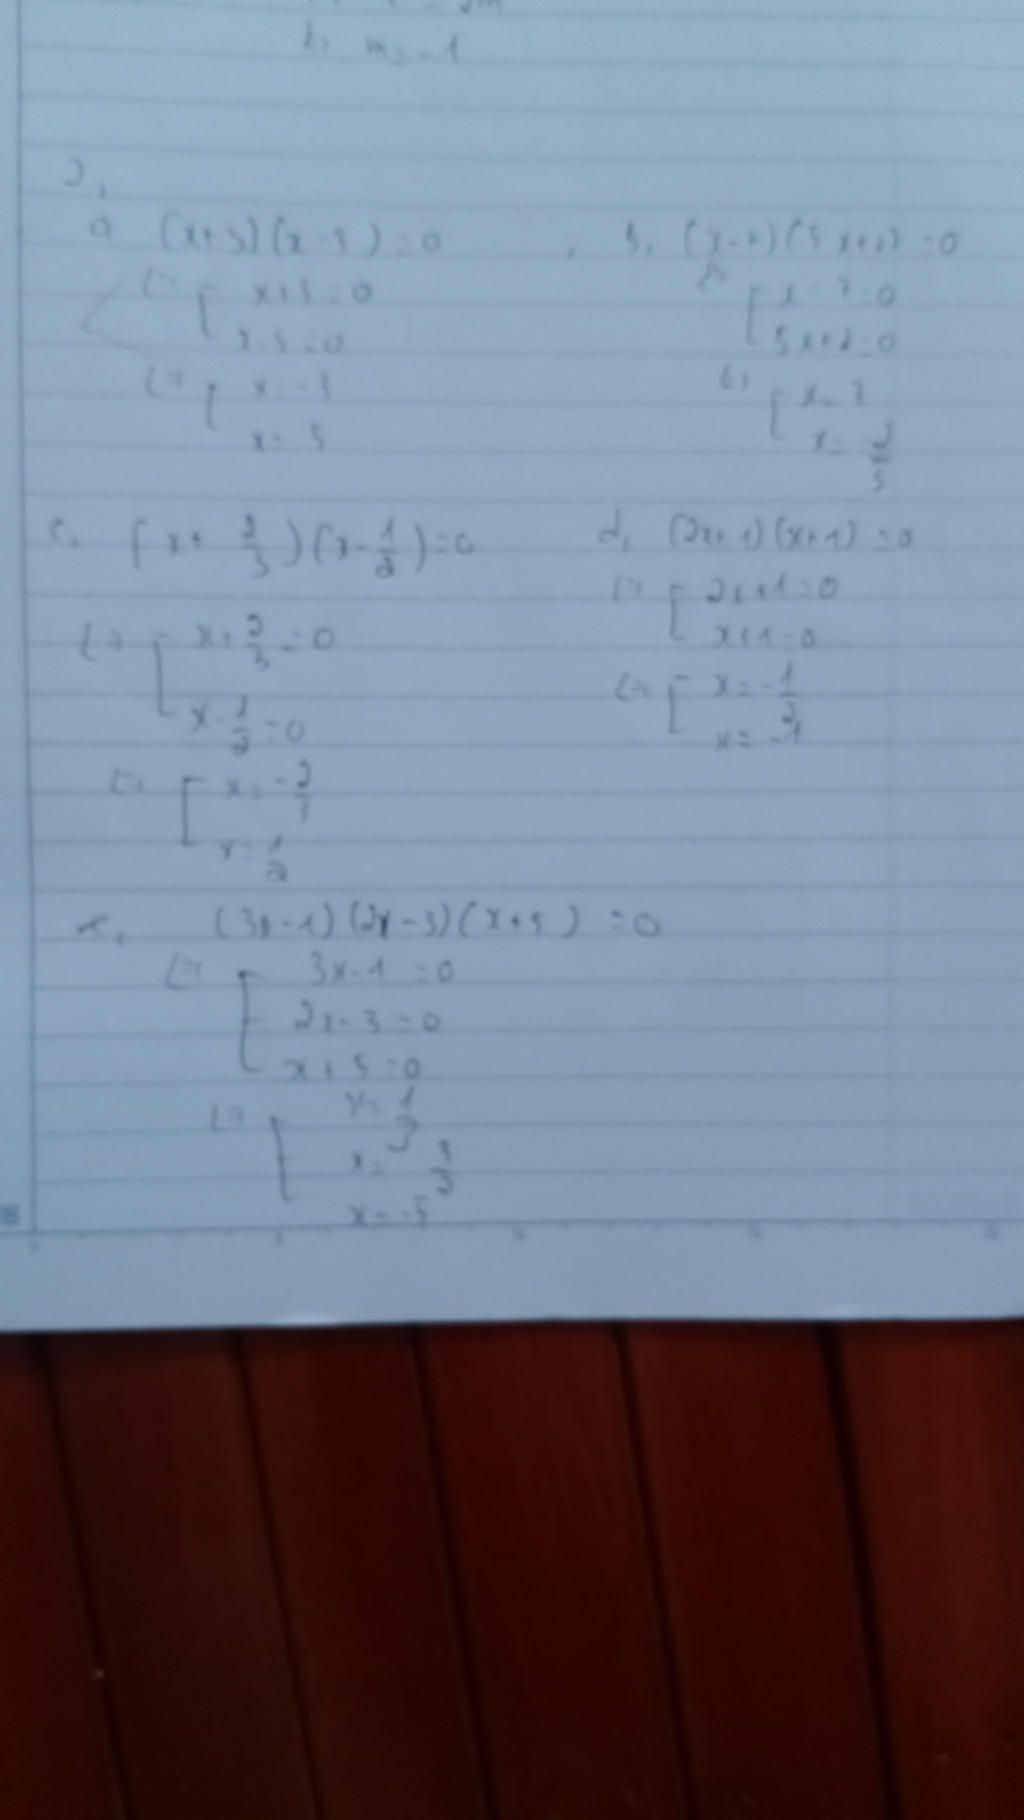 b, m = -1
2,
a (x+3)(x-5) = 0
<=> [ x+3 = 0
x-5 = 0
<=> [ x = -3
x = 5
b, (x-7)(5x+2) = 0
<=> [ x-7 = 0
5x+2 = 0
<=> [ x = 7
x = 2/5
c, (x + 2/3)(x - 1/2) = 0
<=> [ x + 2/3 = 0
x - 1/2 = 0
<=> [ x = -2/3
x = 1/2
d, (2x+1)(x+1) = 0
<=> [ 2x+1 = 0
x+1 = 0
<=> [ x = -1/2
x = -1
e, (3x-1)(2x-3)(x+5) = 0
<=> [ 3x-1 = 0
2x-3 = 0
x+5 = 0
<=> [ x = 1/3
x = 3/2
x = -5